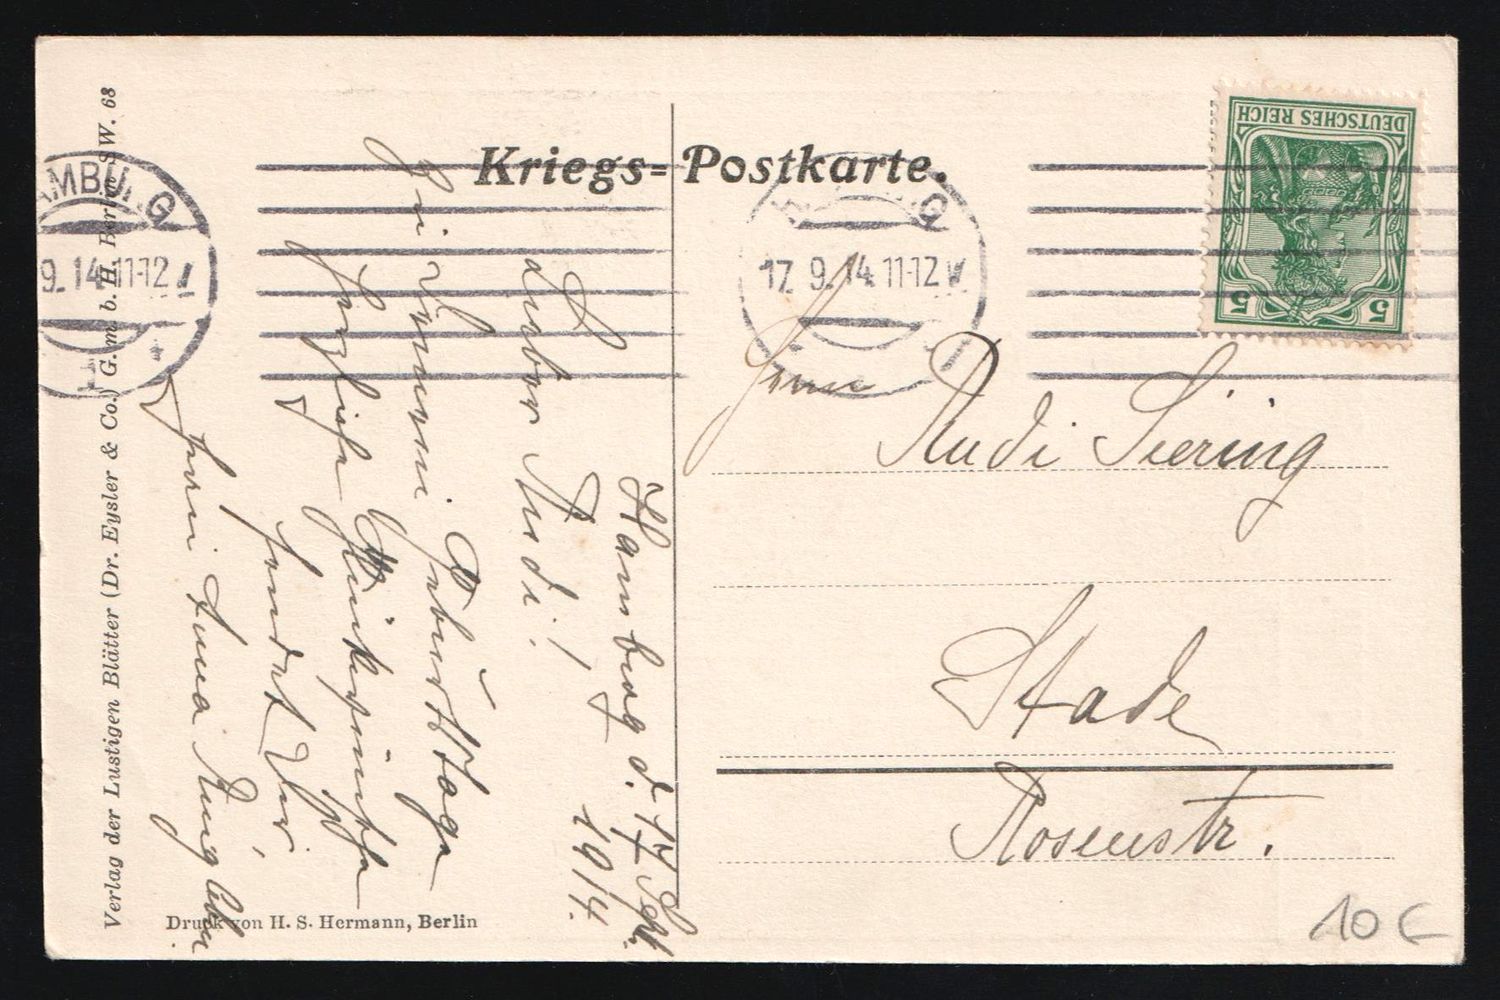 Kriegs=Postkarte.
DEUTSCHES REICH
5 5
HAMBURG
17. 9. 14. 11-12 V
HAMBURG
9. 14. 11-12
Herrn
Rudi Siering
Stade
Rosenstr.
Hamburg d. 17 Sept.
1914.
Lieber Rudi!
Zu Deinem Geburtstage
herzliche Glückwünsche
sendet Dir
Frau Anna
Verlag der Lustigen Blätter (Dr. Eysler & Co.) G. m. b. H. Berlin SW. 68
Druck von H. S. Hermann, Berlin
10 €